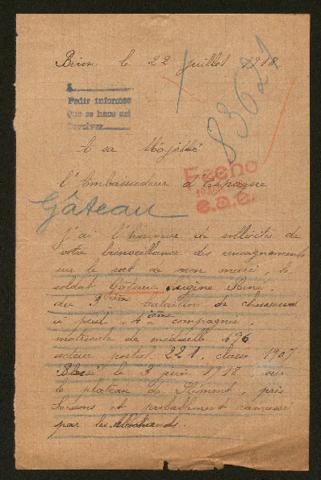 Biron le 22 Juillet 1918
83621
Pedir informes
Que se haca así
A sa Majesté
l'Ambassadeur d'Espagne
Fecho
Gâteau
J'ai l'honneur de solliciter de
votre bienveillance des renseignements
sur le sort de mon mari, le
soldat Gâteau Eugène
du 9 ème bataillon de chasseurs
à pied, 4 ème compagnie,
matricule de médaille 196
secteur postal 221, classe 1907
Blessé le 8 juin 1918 sur
le plateau de près
Soissons et probablement ramassé
par les Allemands